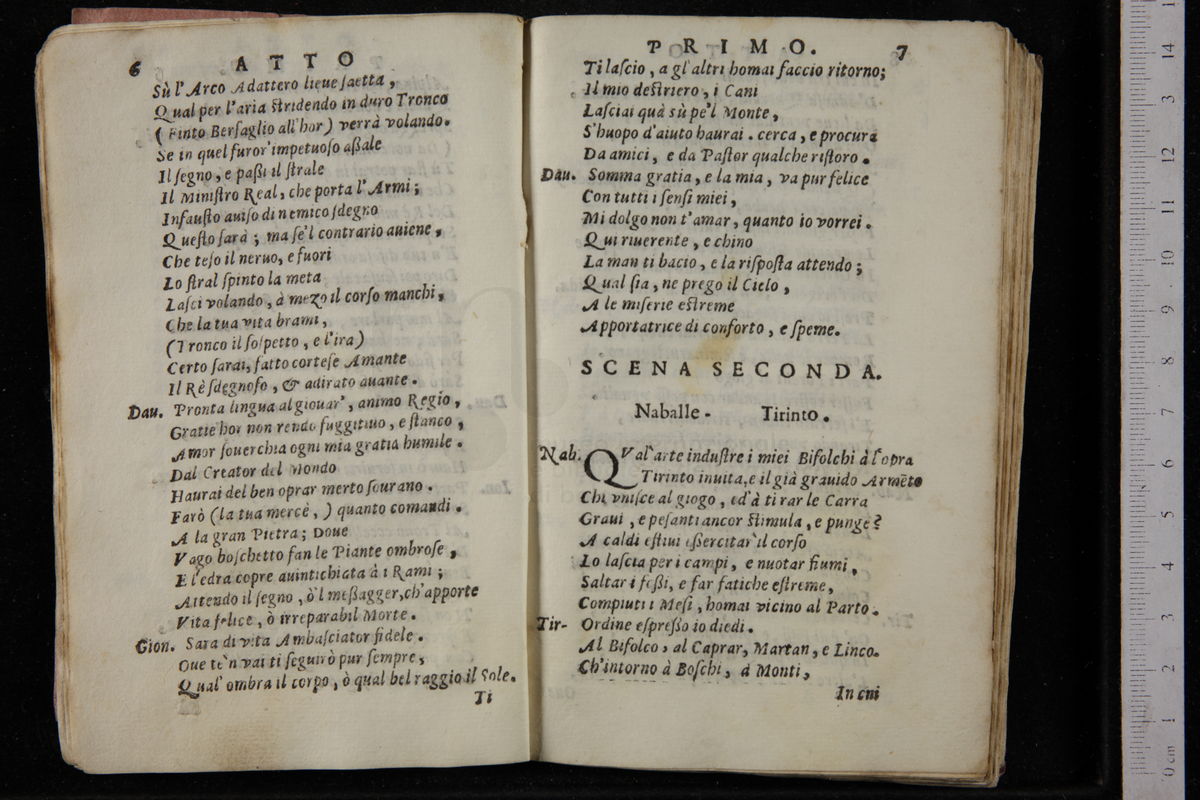 6 ATTO
Sù l'Arco Adattero lieue saetta,
Qual per l'aria stridendo in duro Tronco
(Finto Bersaglio all'hor) verrà volando.
Se in quel furor' impetuoso assale
Il segno, e passi il strale
Il Ministro Real, che porta l'Armi;
Infausto auiso di nemico sdegno
Questo sarà; ma se'l contrario auiene,
Che teso il neruo, e fuori
Lo stral spinto la meta
Lasci volando, à mezo il corso manchi,
Che la tua vita brami,
(Tronco il sospetto, e l'ira)
Certo sarai, fatto cortese Amante
Il Rè sdegnoso, & adirato auante.
Dau. Pronta lingua al giouar', animo Regio,
Gratie hor non rendo fuggitiuo, e stanco,
Amor souerchia ogni mia gratia humile.
Dal Creator del Mondo
Haurai del ben oprar merto sourano.
Farò (la tua mercè,) quanto comandi.
A la gran Pietra; Doue
Vago boschetto fan le Piante ombrose,
E l'edra copre auintichiata à i Rami;
Attendo il segno, ò'l messagger, ch'apporte
Vita felice, ò irreparabil Morte.
Gion. Sarà di vita Ambasciator fidele.
Oue te'n vai ti seguirò pur sempre,
Qual' ombra il corpo, ò qual bel raggio il Sole.
Ti
PRIMO. 7
Ti lascio, a gl'altri homai faccio ritorno;
Il mio destriero, i Cani
Lasciai quà sù pe'l Monte,
S'huopo d'aiuto haurai. cerca, e procura
Da amici, e da Pastor qualche ristoro.
Dau. Somma gratia, e la mia, va pur felice
Con tutti i sensi miei,
Mi dolgo non t'amar, quanto io vorrei.
Qui riuerente, e chino
La man ti bacio, e la risposta attendo;
Qual sia, ne prego il Cielo,
A le miserie estreme
Apportatrice di conforto, e speme.
SCENA SECONDA.
Naballe - Tirinto.
Nab. QVal'arte industre i miei Bifolchi à l'opra
Tirinto inuita, e il già grauido Armēto
Chi vnisce al giogo, ed'à tirar le Carra
Graui, e pesanti ancor stimula, e punge?
A caldi estiui essercitar il corso
Lo lascia per i campi, e nuotar fiumi,
Saltar i fossi, e far fatiche estreme,
Compiuti i Mesi, homai vicino al Parto.
Tir- Ordine espresso io diedi.
Al Bifolco, al Caprar, Martan, e Linco.
Ch'intorno à Boschi, à Monti,
In cui
0 cm 1 2 3 4 5 6 7 8 9 10 11 12 13 14